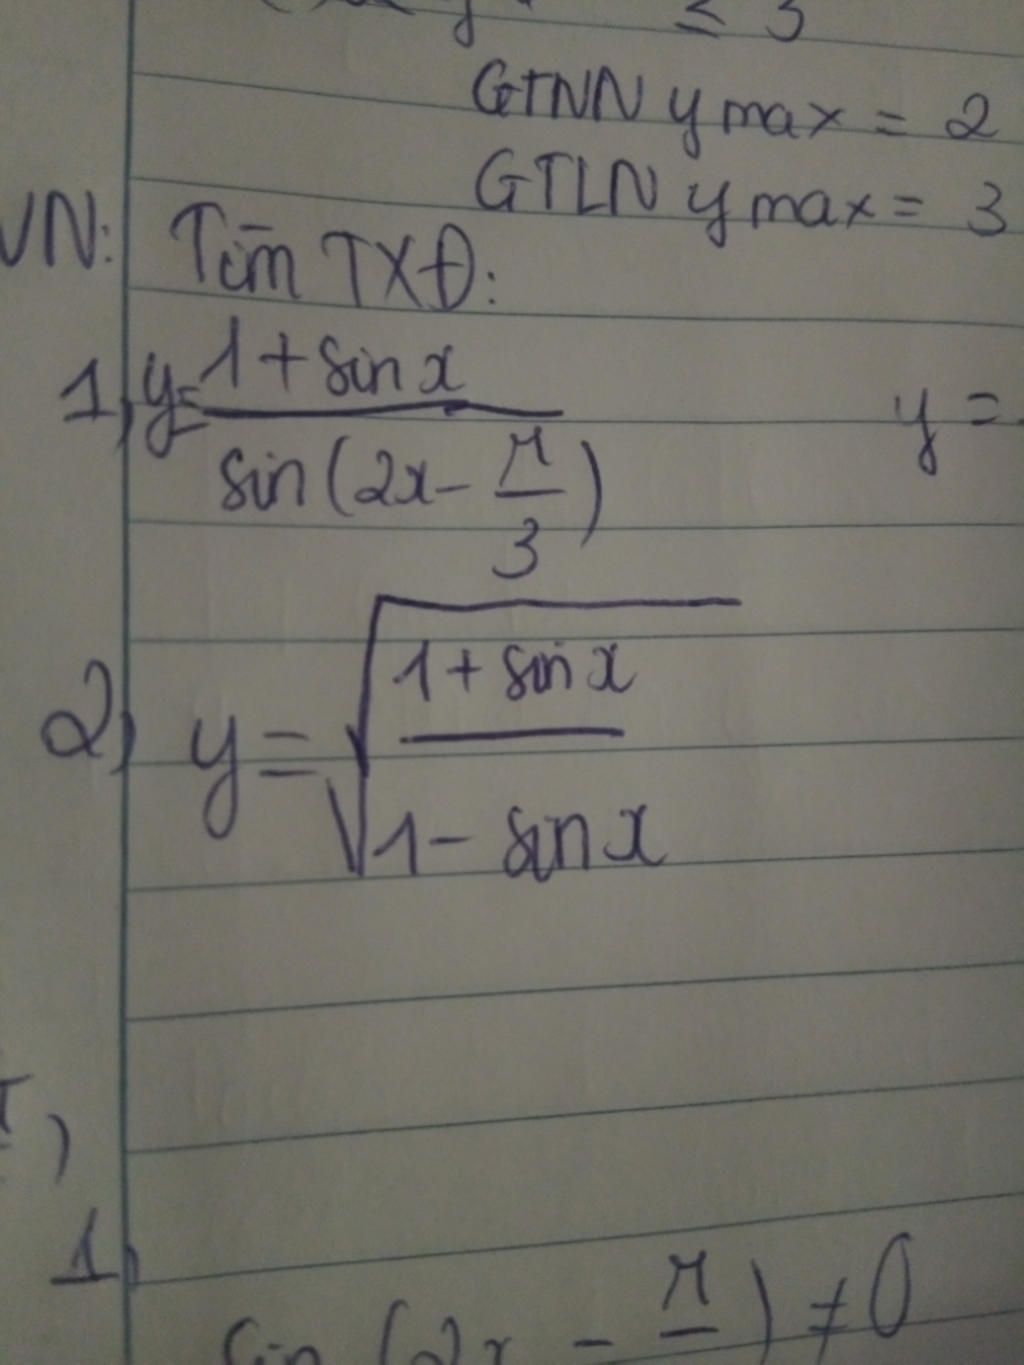 ≤ 3
GTNN y max = 2
GTLN y max = 3
VN: Tìm TXĐ:
1, y = \frac{1 + sin x}{sin(2x - \frac{π}{3})} y =
2) y = \sqrt{\frac{1 + sin x}{1 - sin x}}
)
1)
sin (2x - π ) ≠ 0